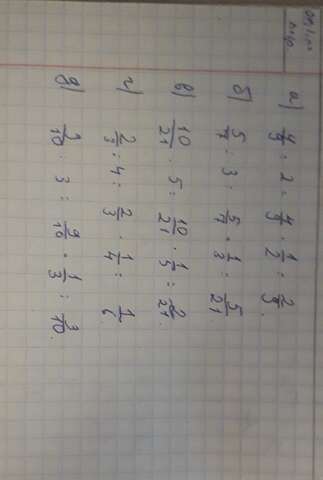 а) 4/9 : 2 = 4/9 · 1/2 = 2/9.
б) 5/7 : 3 = 5/7 · 1/3 = 5/21
в) 10/21 : 5 = 10/21 · 1/5 = 2/21.
г) 2/3 : 4 = 2/3 · 1/4 = 1/6
д) 9/10 : 3 = 9/10 · 1/3 = 3/10.